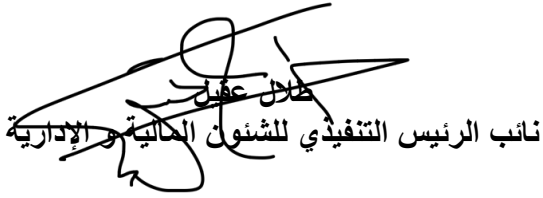 طلال عقيل
نائب الرئيس التنفيذي للشئون المالية و الإدارية